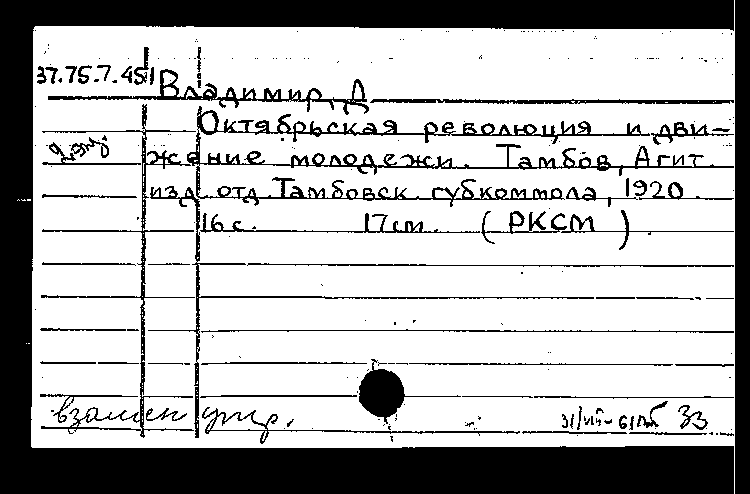 37.75.7.451
Владимир, Д
Октябрьская революция и дви-
2 экз
жение молодежи. Тамбов, Агит.
изд. отд. Тамбовск. губкоммола, 1920.
16 с. 17 см. (РКСМ).
взамен утр.
33